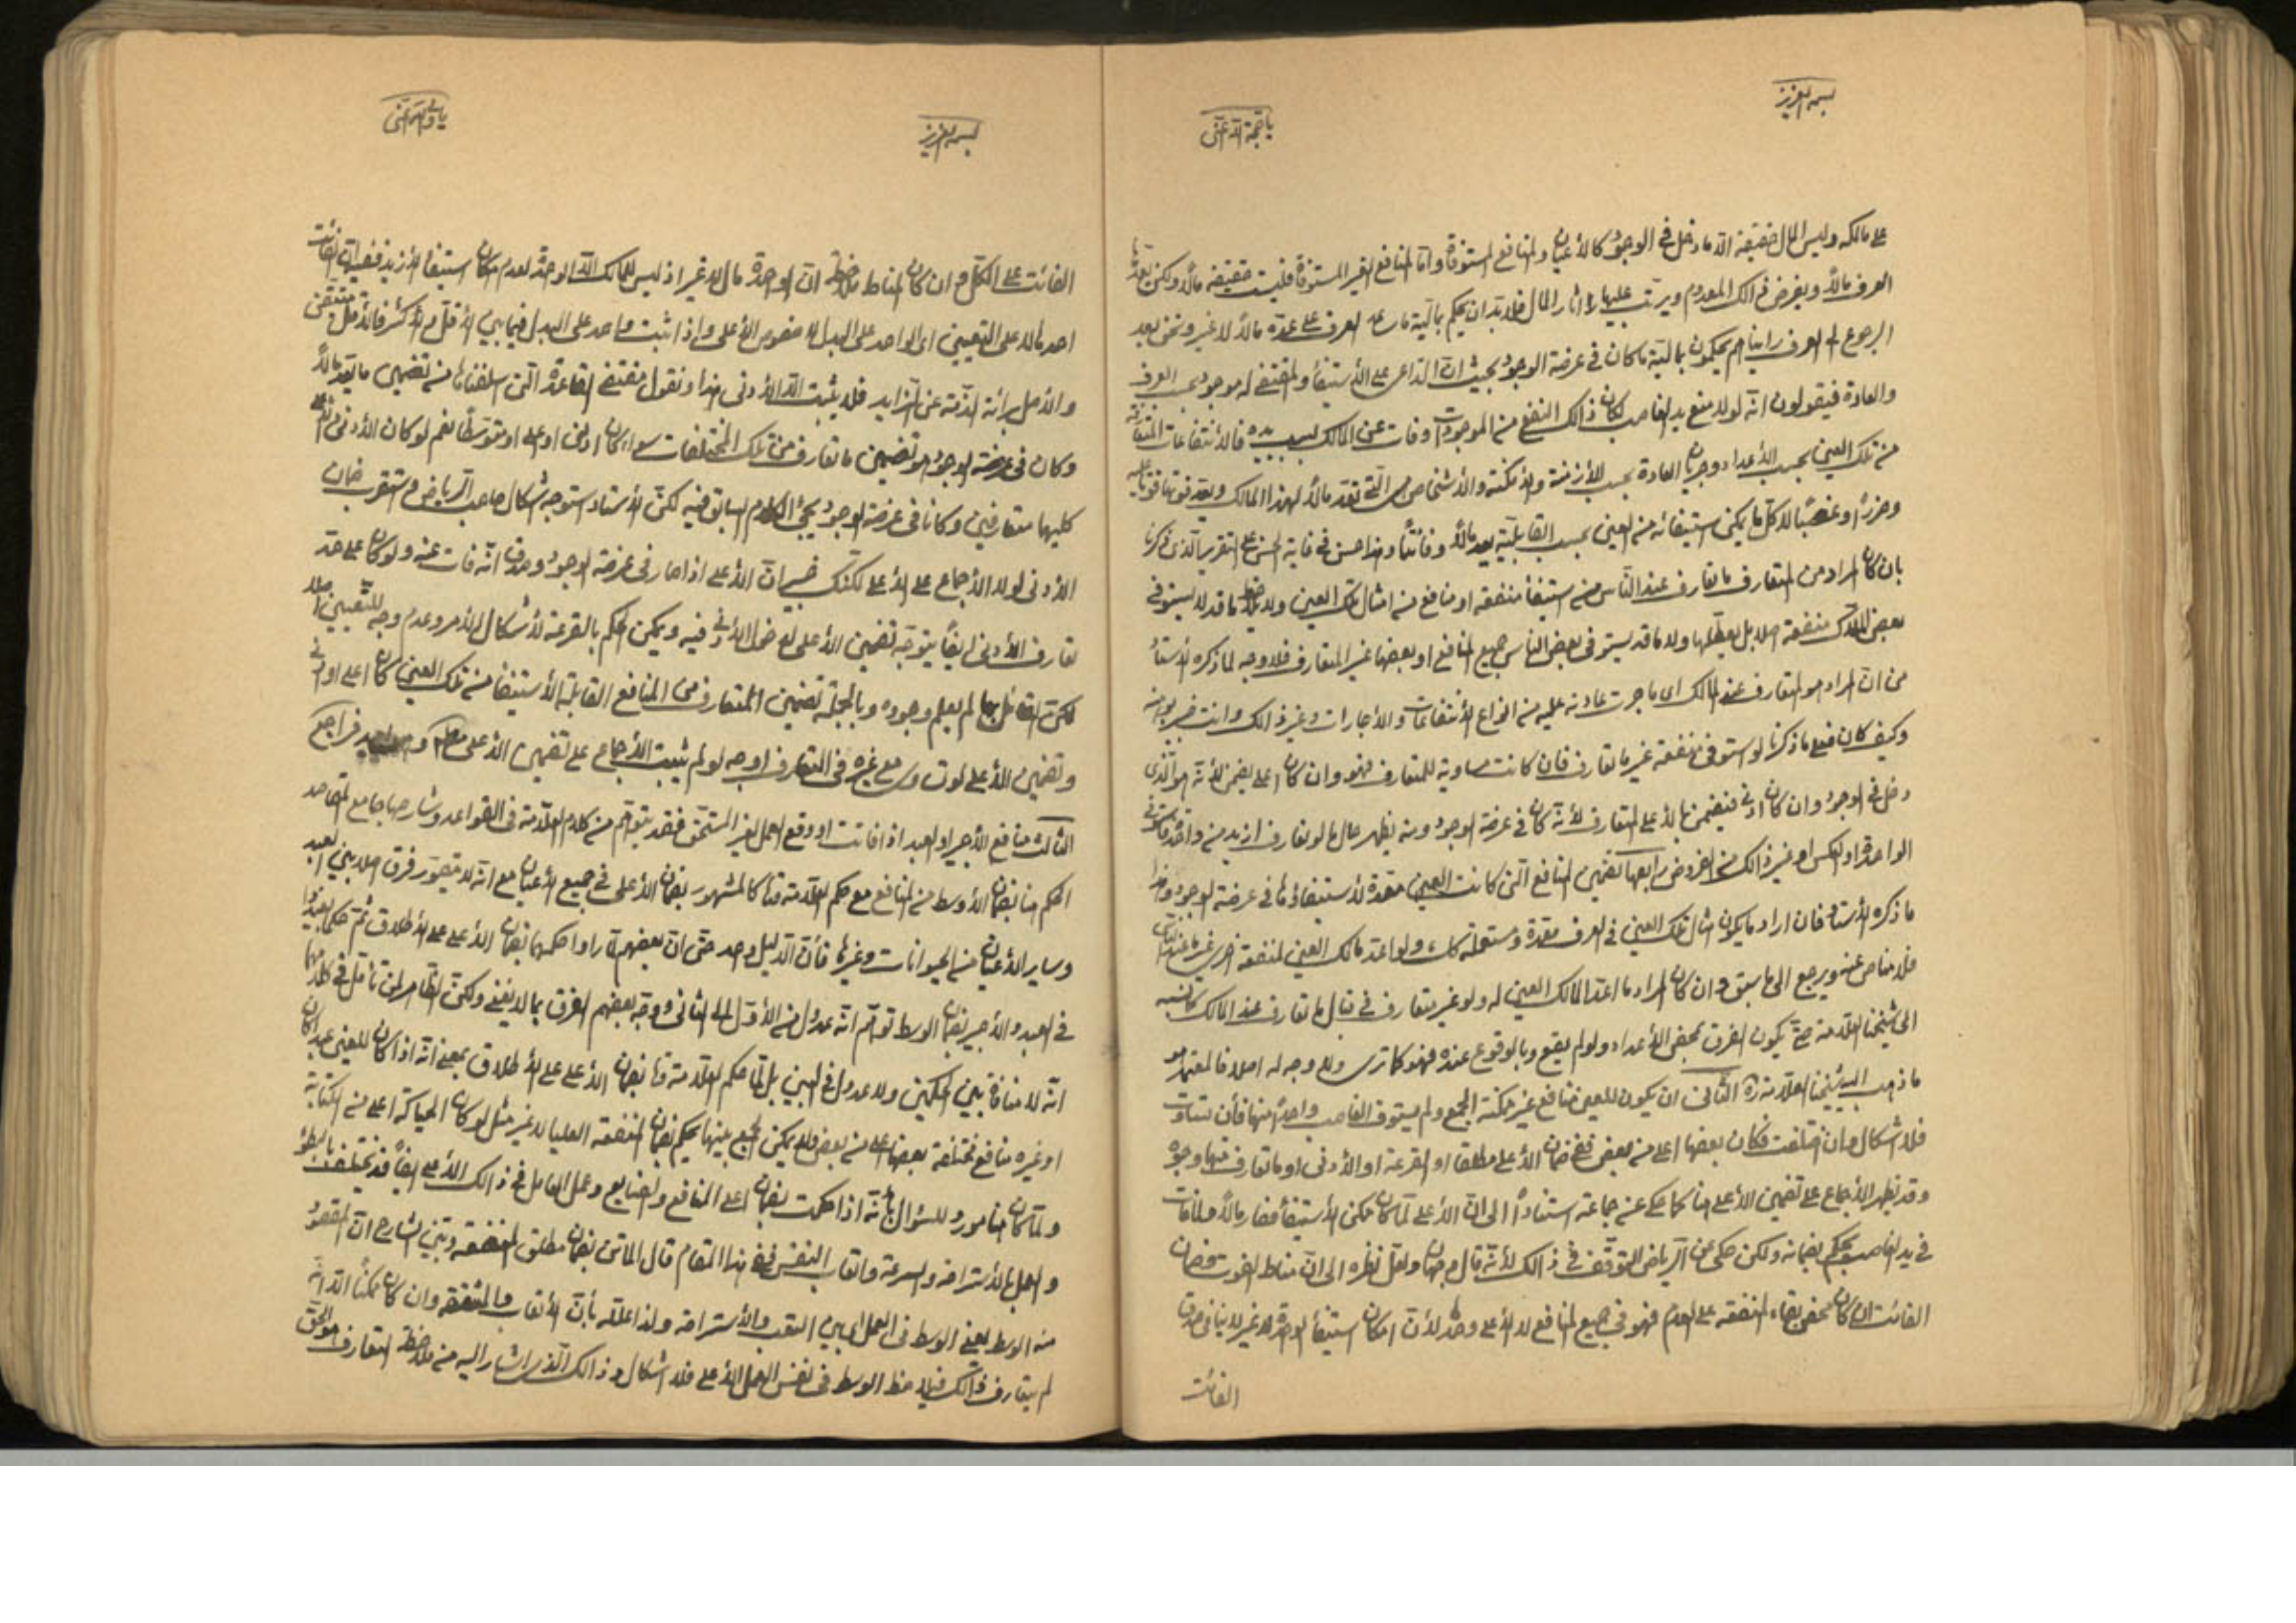 بسمه العزيز
يا حجة الله اغثنى
على مالكه وليس المال حقيقة الا ما دخل فى الوجود كالأعيان والمنافع المستوفاة وامّا المنافع الغير المستوفاة فليست حقيقة مالاً ولكن يعدّها
العرف مالاً ويفرض ذالك المعدوم ويرتب عليها اثار المال فلابد ان يحكم بمالية ما عد العرف على عدّه مالاً لا غير ونحن بعد
الرجوع الى العرف رايناهم يحكمون بمالية ما كان فى عرضة الوجود بحيث انّ الداعى على الأستيفاء والمقتضى له موجود بحسب العرف
والعادة فيقولون انّه لولا منع يد الغاصب لكان ذالك النفع من الموجودات وفات عن المالك بسبب يده فالأنتفاعات المتفاوتة
من تلك العين بحسب الأعداد وجريان العادة بحسب الأزمنة والأمكنة والأشخاص هى التى تعدّ مالاً لهذا المالك ويعد فوتها فوتا عليه
وضرراً وغصباً لا كل ما يمكن استيفائه من العين بحسب القابلية يعد مالاً وفائتاً وهذا حسن فى غاية الحسن على التقرير الذى ذكرنا
بان كان المراد من المتعارف ما تعارف عند الناس من استيفاء منفعة او منافع من امثال تلك العين ولا يلاحظ ما قد لا يستوفى
بعض الملاك منفعة اصلا بل يعطلها ولا ما قد يستوفى بعض الناس جميع المنافع او بعضها غير المتعارف فلا وجه لما ذكره الأستاد
من انّ المراد هو المتعارف عند المالك اى ما جرت عادته عليه من انواع الأنتفاعات والأجارات وغير ذالك وانت خبير بوهنه
وكيف كان فعلى ما ذكرنا لو استوفى منفعة غير ما تعارف فان كانت مساوية للمتعارف فهو وان كان اعلى يضمن لأنّه هو الذى
دخل فى الوجود وان كان ادنى فيضمن بالأعلى المتعارف لأنّه كان فى عرضة الوجود ومنه يظهر حال ما لو تعارف ازيد من واحد فاستوفى
الواحد او العكس او غير ذالك من الفروض رابعها تضمين المنافع التى كانت العين معدّة لأستيفاؤها فى عرضة الوجود وهذا
ما ذكره الأستاد فان اراد ما يكون امثال تلك العين فى العرف معدّة ومستعملة كك ولو اعد مالك العين لمنفعة اخرى غير ما عندهم
فلا مناص عنه ويرجع الى ما سبق وان كان المراد ما اعدّ المالك العين له ولو غير متعارف فى قبال ما تعارف عند المالك كما نسبه
الى شيخنا العلامة حتى يكون الفرق بمحض الأعداد ولو لم يقع وبالوقوع عنده فهو كما ترى ولا وجه له اصلا فالمعتمد هو
ما ذهب اليه شيخنا العلامة ره الثانى ان يكون للعين منافع غير ممكنة الجمع ولم يستوف الغاصب واحداً منها فأن تساوت
فلا اشكال وان اختلفت فكان بعضها اعلى من بعض ففى ضمان الأعلى مطلقا او القرعة او الأدنى او ما تعارف منها وجوه
وقد يظهر الأجماع على تضمين الأعلى هنا كما حكى عن جماعة استناداً الى انّ الأعلى لمّا كان ممكن الأستيفاء فصار مالاً فلما فات
فى يد الغاصب يحكم بضمانه ولكن حكى عن الرياض التوقف فى ذالك لأنّه قال وجهان ولعل نظره الى انّ مناط الفوت وضمان
الفائت ان كان محض بقاء المنفعة على العدم فهو فى جميع المنافع لا الأعلى وحده لأن امكان استيفاء الواحدة لا غير لا ينافى صدق
الفائت
بسمه العزيز
يا ولى الله اغثنى
الفائت على الكلّ وان كان المناط ملاحظة انّ الواحدة مال لا غير اذ ليس للمالك الّا الواحد لعدم امكان استيفاء الأزيد ففيه انّ الفائت
احدها لا على التعيين اى الواحد على البدل لا خصوص الأعلى واذا ثبت واحد على البدل فيما بين الأقل والأكثر فالأقل متيقن
والأصل برائة الذمّة عن الزايد فلا يثبت الّا الأدنى هذا ونقول مقتضى القاعدة التى اسلفناها من تضمين ما يعد مالاً
وكان فى عرضة الوجود هو تضمين ما تعارف من تلك المختلفات سواء كان ادنى او اعلى او متوسطا نعم لو كان الأدنى والأعلى
كليهما متعارفين وكانا فى عرضة الوجود يجئ الكلام السابق فيه لكنّ الأستاد استوجه اشكال صاحب الرياض واستقرب ضمان
الأدنى لولا الأجماع على الأعلى لكنّك خبير انّ الأعلى اذا صار فى عرضة الوجود وصدق انّه فات عنه ولو كان على حد
تعارف الأدنى ايضاً يتوجّه تضمين الأعلى لدخول الأدنى فيه ويمكن الحكم بالقرعة لأشكال الأمر وعدم وجه للتعيين اصلا
لكنّ القائل بها لم يعلم وجوده وبالجملة تضمين المتعارف من المنافع القابلة للأستيفاء من تلك العين كان اعلى او ادنى
وتضمين الأعلى لو تساوى مع غيره فى التعارف اوجه لو لم يثبت الأجماع على تضمين الأعلى فراجع
الثالث منافع الأجير او العبد اذا فاتت او وقع العمل الغير المستحق فقد يتوهّم من كلام العلّامة فى القواعد وشارحها جامع المقاصد
الحكم هنا بضمان الأوسط من المنافع مع حكم العلّامة هنا كالمشهور بضمان الأعلى فى جميع الأعيان مع انّه لا يتصوّر فرق اصلا بين العبد
وساير الأعيان من الحيوانات وغيرها فأنّ الدليل واحد حتى انّ بعضهم لمّا راوا حكمهما بضمان الأعلى على الأطلاق ثم حكما بعد
فى العبد والأجير بضمان الوسط توهّم انّه عدول من الأوّل الى الثانى ووجّه بعضهم الفرق بما لا يغنى ولكنّ الظاهر لمن تأمّل فى كلامهما
انّه لا منافاة بين الحكمين ولا عدول فى البين بل لمّا حكم العلامة هنا بضمان الأعلى على الأطلاق بمعنى انّه اذا كان للعين عبدا كان
او غيره منافع مختلفة بعضها اعلى من بعض ولا يمكن الجمع بينها يحكم بضمان المنفعة العليا لا غير مثل لو كان الحياكة اعلى من الكتابة
ولمّا كان هنا مورد للسؤال بأنّه اذا حكمت بضمان اعلى المنافع والصنايع وعمل العامل فى ذالك الأعلى ايضاً قد يختلف بالبطؤ
والعجل بالأستراحة والسرعة واتعاب النفس ففى هذا المقام قال الماتن بضمان مطلق المنفعة وبيّن الشارح انّ المقصود
منه الوسط يعنى الوسط فى العمل اى بين التعب والأستراحة ولذا علّله بأنّ الأتعاب والمشقة وان كان ممكناً الّا انّه
لم يتعارف ذالك فيلاحظ الوسط فى نفس العمل الأعلى فلا اشكال وذالك الذى اشار اليه من ملاحظة التعارف هو الحق